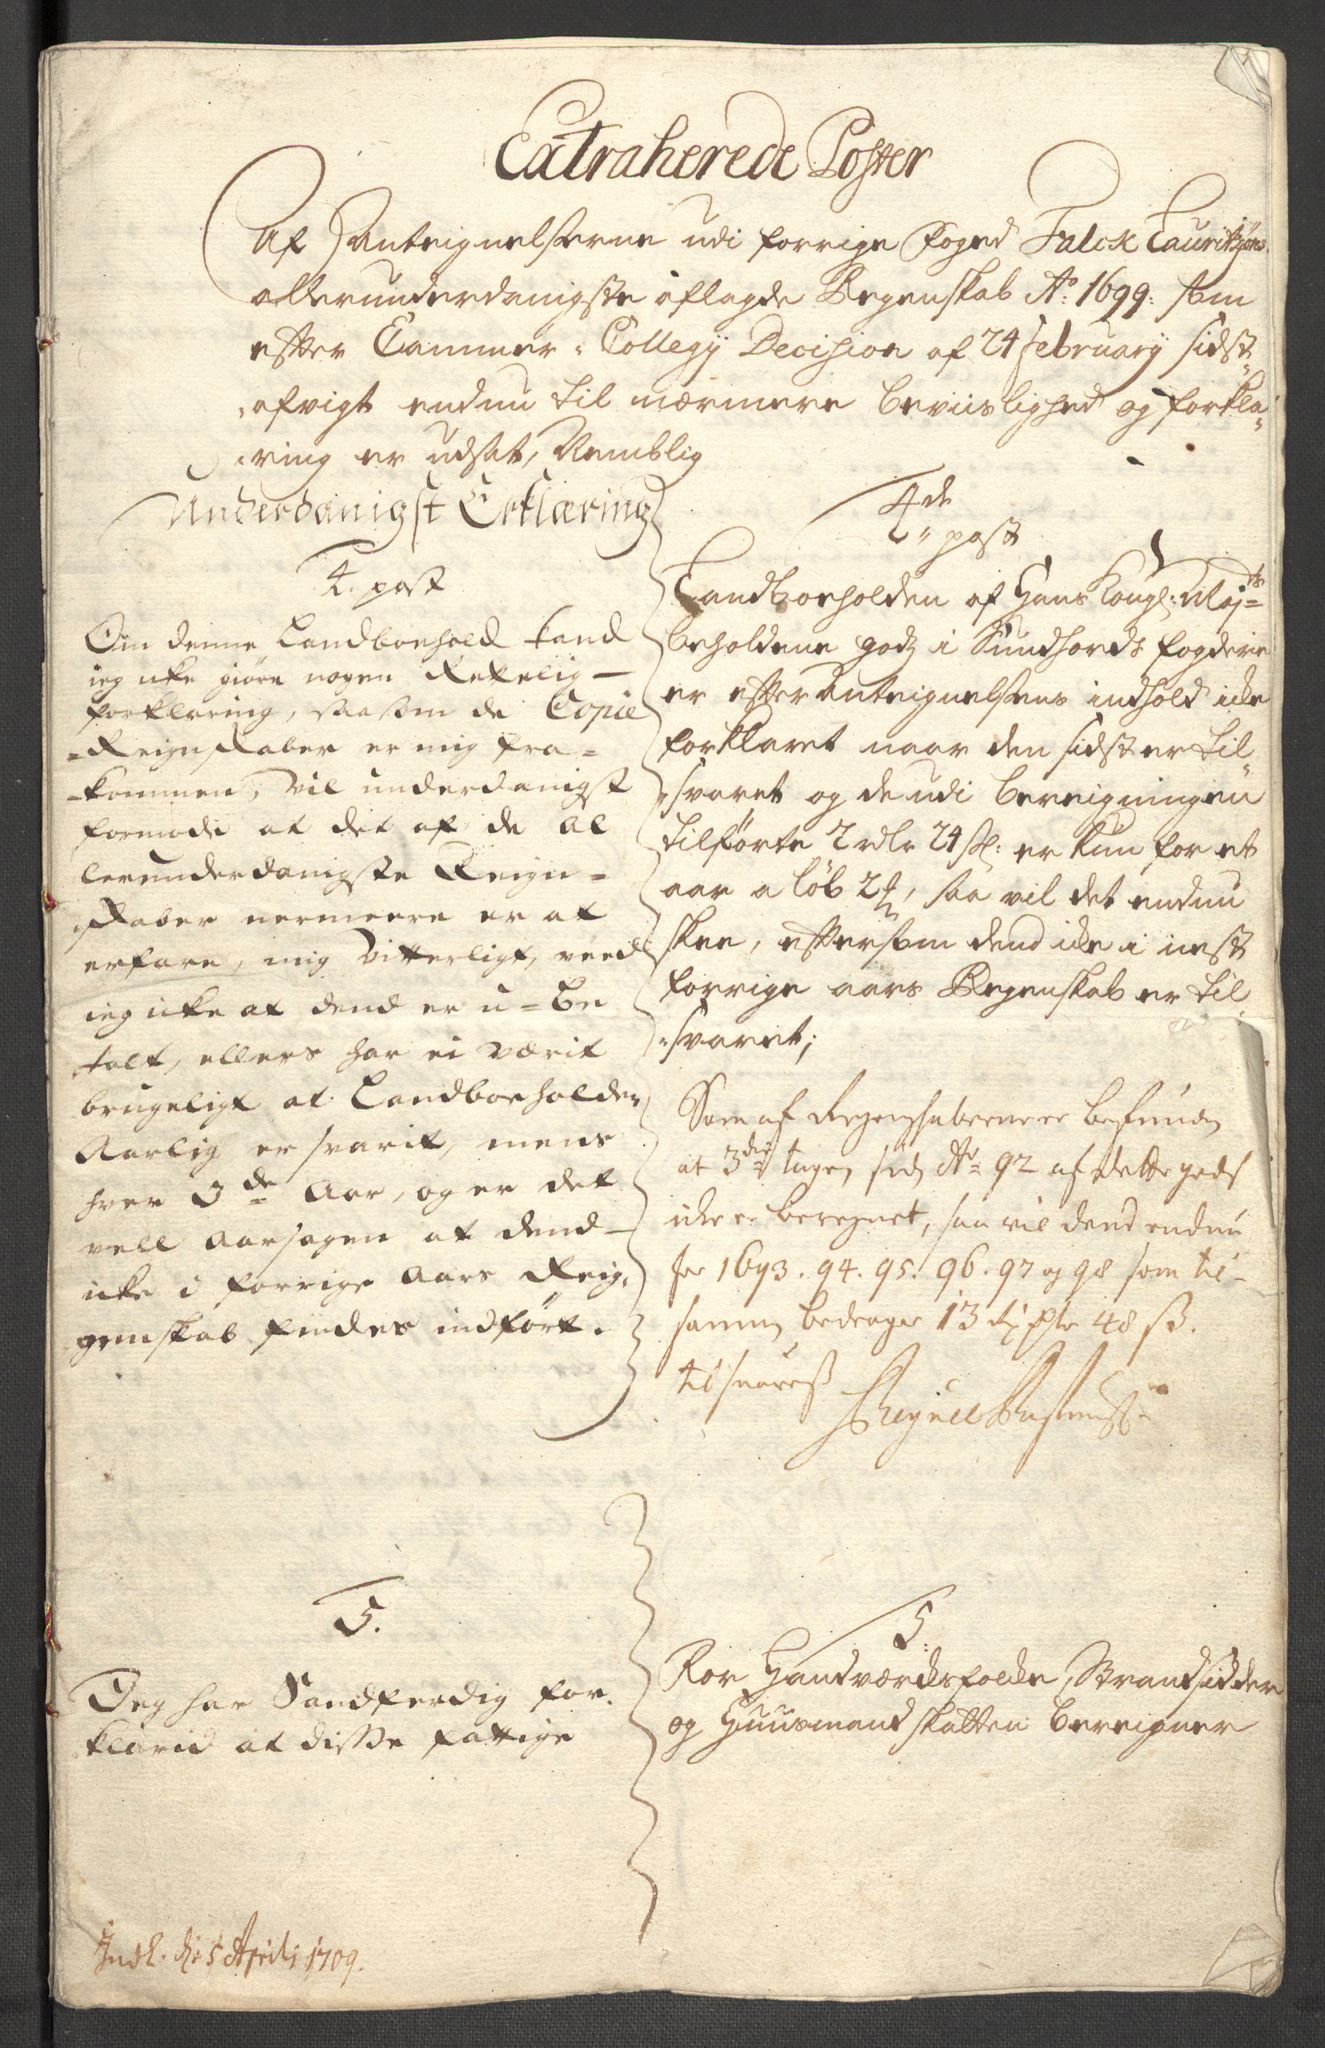 Extraherede Poster
Af Antegnelserne udi forrige Foged Falck Lauritzøns
allerunderdanigste aflagde Regenskab Ao: 1699: som
efter Cammer-Collegij Decision af 24 February sidst
afvigt endnu til nærmere beviislighed og forkla-
ring er udsat, Nemblig
Underdanigst Erklæring
4. post
Om denne Landboehold kand
ieg icke giøre nogen Retelig
forklaring, saasom de Copie
Reignskaber er mig fra-
kommen, vil underdanigst
formode at det af de al
lerunderdanigste Reign-
skaber nermeere er at
erfare, mig vitterligt, veed
ieg icke at dend er u-be
talt, ellers har ei værit
brugeligt at Landboeholden
Aarlig er svarit, mens
hver 3de Aar, og er det
vell Aarsagen at dend
icke i forrige Aars Reig-
genskab findes indført.
4de post
Landboeholden af Hans Kongl: Maj:ts
beholdene godz i Sundhords fogderie
er efter Antegnelsens indhold icke
forklaret naar den sidst er til-
svaret og de udi bereigningen
tilførte 2 rdlr 24 sk: er kun for et
aar a løb 2 sk, saa vil det endnu
skee, eftersom dend icke i nest
forrige aars Regenskab er til
svaret;
Som af Regenskaberne er befunden
at 3die tagen siden Ao 92 af dette gods
icke er beregnet, saa vil dend endnu
for 1693. 94. 95. 96. 97 og 98 som til-
sammen bedrager 13 rdr 48 sk.
tilsvares
5.
Jeg har Sandferdig for-
klarid at disse fattige
5.
For Handværksfolke, Strandsidder
og Huusmand skatten bereigner
Indl. d: 5 Aprili 1709.